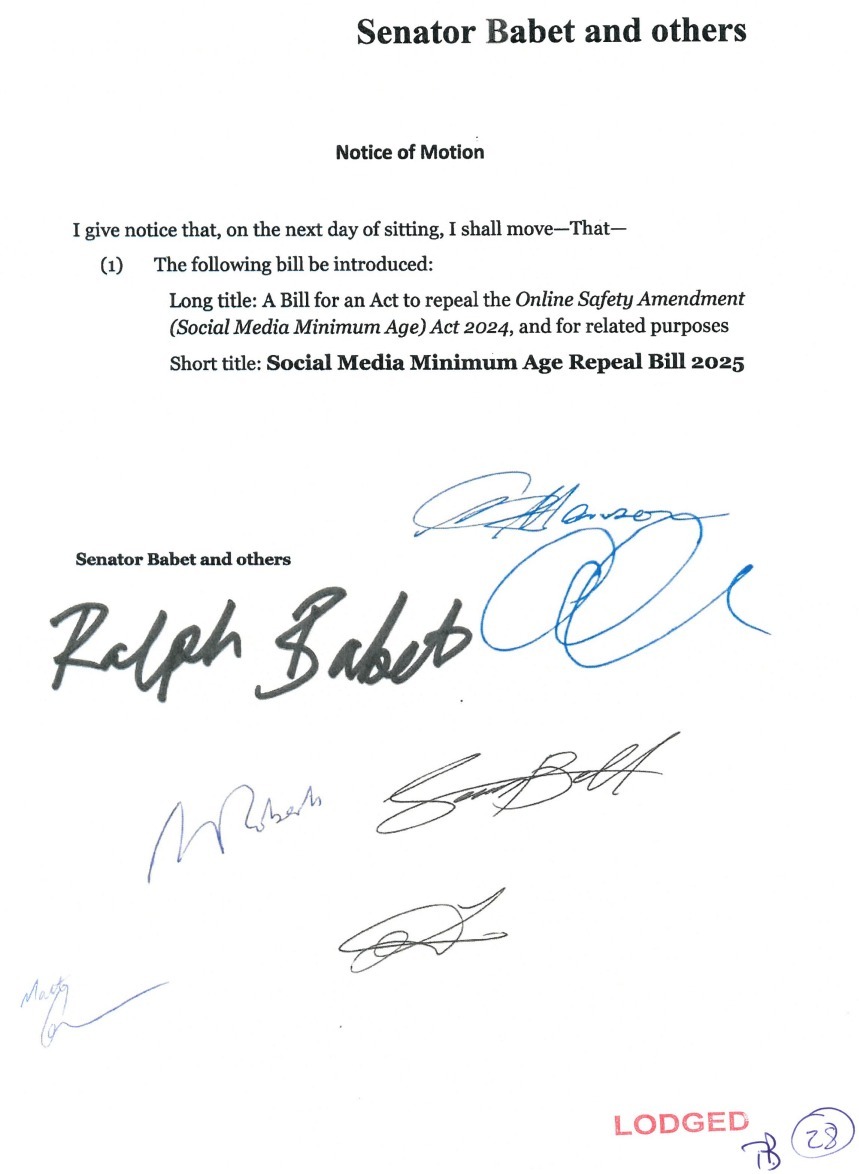 Senator Babet and others
Notice of Motion
I give notice that, on the next day of sitting, I shall move—That—
(1) The following bill be introduced:
Long title: A Bill for an Act to repeal the Online Safety Amendment
(Social Media Minimum Age) Act 2024, and for related purposes
Short title: Social Media Minimum Age Repeal Bill 2025
Hanson
Senator Babet and others
Ralph Babet
Roberts
LODGED
28